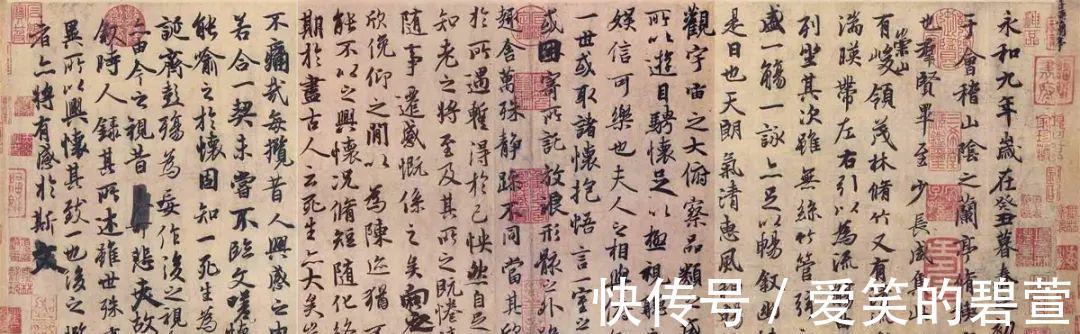 永和九年歲在癸丑暮春
于會稽山陰之蘭亭脩
也羣賢畢至少長咸集
有崇山峻領茂林脩竹又有
湍暎帶左右引以為流
列坐其次雖無絲竹管弦
盛一觴一詠亦足以暢叙幽
是日也天朗氣清惠風
觀宇宙之大俯察品類
所以遊目騁懷足以極視
娛信可樂也夫人之相
一世或取諸懷抱悟言一室之
或因寄所託放浪形骸之外
趣舍萬殊靜躁不同當其欣
於所遇蹔得於己怏然自足
知老之將至及其所之既惓
隨事遷感慨係之矣向之
欣俛仰之閒以為陳迹猶不
能不以之興懷況脩短隨化
期於盡古人云死生亦大矣
不痛哉每攬昔人興感之由
若合一契未嘗不臨文嗟悼
能喻之於懷固知一死生為
誕齊彭殤為妄作後之視
由今之視昔悲夫故
敘時人錄其所述雖世殊
異所以興懷其致一也後之
者亦將有感於斯文
快传号 / 爱笑的碧萱